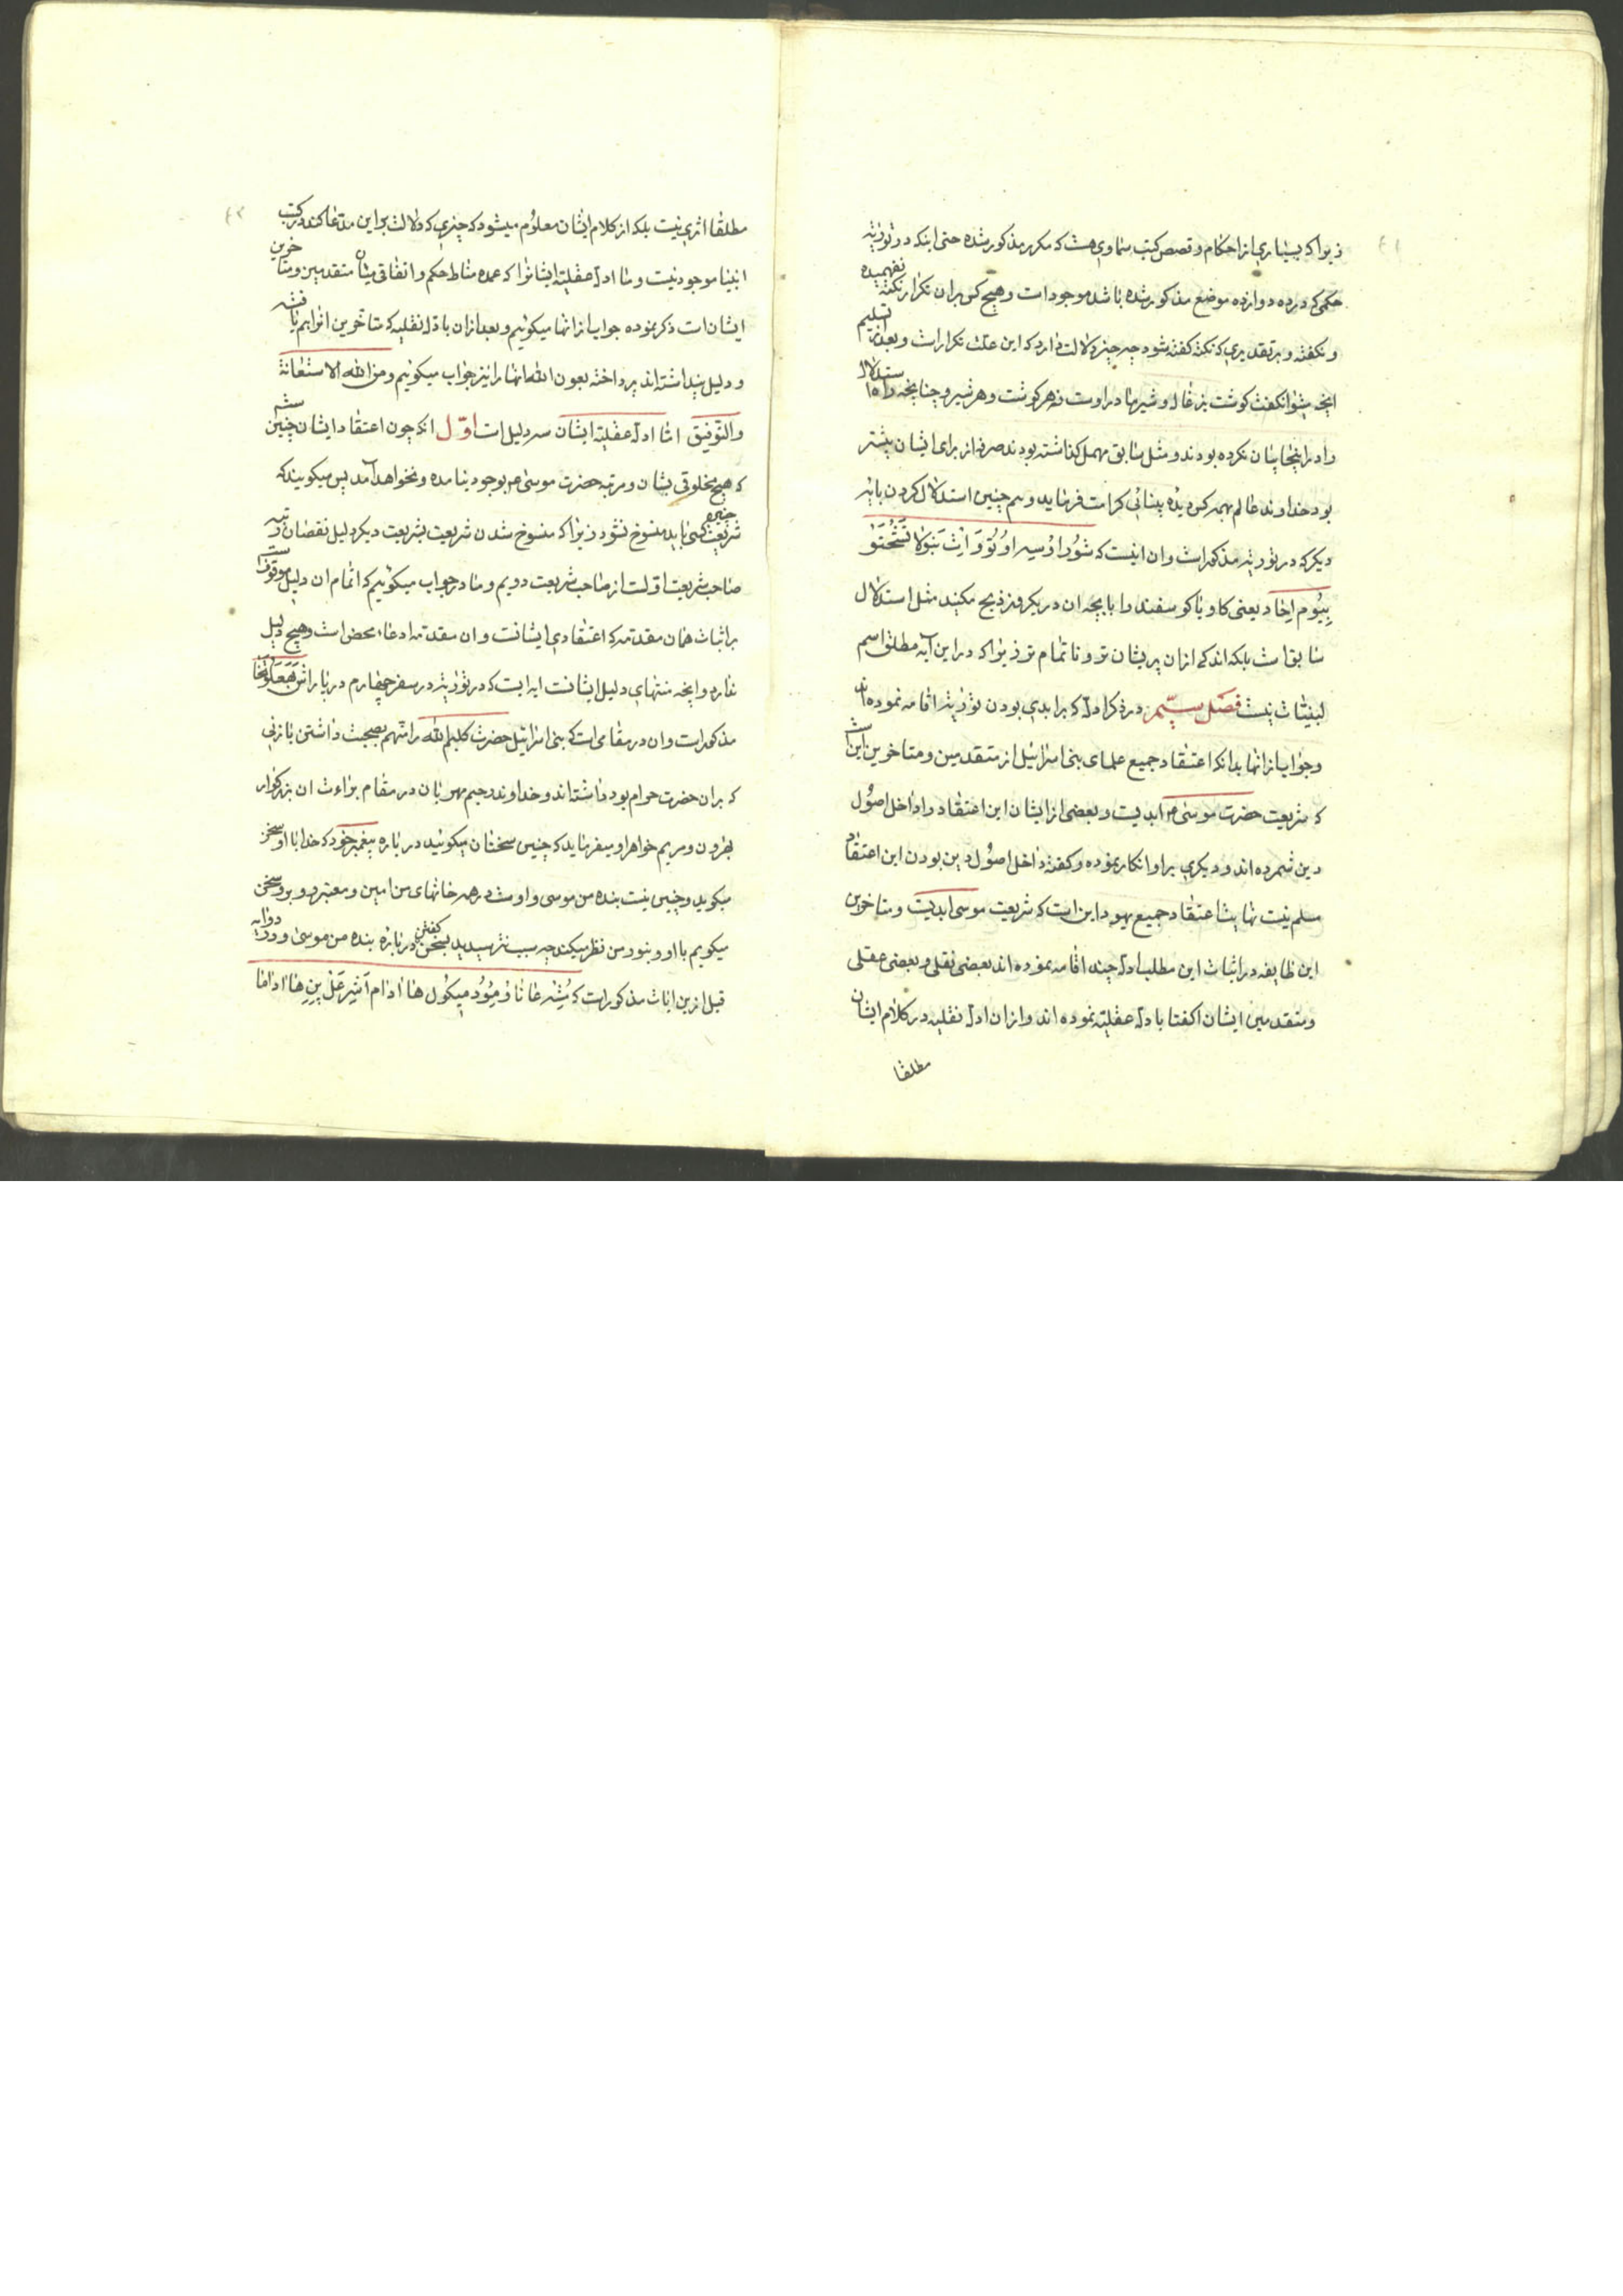 زیرا که بسیاری از احکام و قصص کتب سماوی هست که مکرر مذکور شده حتی اینکه در توریة
حکمی که در ده دوازده موضع مذکور شده باشد موجود است و هیچ کس بر ان تکرار نکته نفهمیده
و نکفته و بر تقدیری که نکته کفته شود چه چیز دلالت دارد که این علت تکرار است و بعد تسلیم
انچه میتوان کفت کوشت بزغاله و شیر مادر اوست نه هر کوشت و هر شیر و چنانچه راه استدلال
را در اینجا بیان نکرده بودند و مثل سابق مهمل کذاشته بودند صرفه از برای ایشان بیشتر
بود خداوند عالم بهمه کس دیده بینائی کرامت فرماید و هم چنین استدلال کردن بایه
دیکر که در توریة مذکور است و ان اینست که شُور اوُ سِه اوُتُو وَ اِث بَنوُ لا تَشْحَتَوُ
بِیُوم اِخاد یعنی کاو و یا کوسفند را با بچه ان در یکروز ذبح مکنید مثل استدلال
سابق است بلکه اندکی از ان پریشان تر و ناتمام تر زیرا که در این آیه مطلق اسم
لبنیات نیست فصل سیّم در ذکر ادلهٔ که بر ابدی بودن توریة اقامه نموده اند
و جواب از انها بدانکه اعتقاد جمیع علمای بنی اسرائیل از متقدمین و متاخرین این است
که شریعت حضرت موسی ع ابدیت و بعضی از ایشان این اعتقاد را داخل اصُول
دین شمرده اند و دیکری بر او انکار نموده و کفته داخل اصُول دین بودن این اعتقاد
مسلم نیست نهایت اعتقاد جمیع یهود این است که شریعت موسی ابدیت و متاخرین
این طایفه در اثبات این مطلب ادلهٔ چند اقامه نموده اند بعضی نقلی و بعضی عقلی
و متقدمین ایشان اکتفا بادلهٔ عقلیّه نموده اند و از ان ادلهٔ نقلیه در کلام ایشان
مطلقا
مطلقا اثری نیت بلکه از کلام ایشان معلوُم میشود که چیزی که دلالت بر این مدعا کند در کتب
انبیا موجود نیت و ما ادلهٔ عقلیّه ایشانرا که عمده مناط حکم و اتفاقی میان متقدمین و متاخرین
ایشان است ذکر نموده جواب از انها میکوئیم و بعد از ان بادلهٔ نقلیه که متاخرین انرا هم یافته
و دلیل پنداشته اند پرداخته بعون الله انها را نیز جواب میکوئیم و من الله الاستعانة
والتوفیق امّا ادلهٔ عقلیّه ایشان سه دلیل است اوّل انکه چون اعتقاد ایشان چنین است
که هیچ مخلوقی بشان و مرتبه حضرت موسی ع بوجود نیامده و نخواهد آمد پس میکویند که
شریعت چنین کسی باید منسوخ نشود زیرا که منسوخ شدن شریعت بشریعت دیکر دلیل نقصان مرتبه
صاحب شریعت اوّلت از صاحب شریعت دویم و ما در جواب میکوئیم که اتمام ان دلیل موقوف است
بر اثبات همان مقدّمه که اعتقادی ایشانت و ان مقدّمه ادعاء محض است و هیچ دلیل
ندارد و انچه منتهای دلیل ایشانت ایه ایست که در توریة در سفر چهارم در پاراش
مذکور است و ان در مقامی است که بنی اسرائیل حضرت کلیم الله را متّهم بصحبت داشتن با زنی
که بر ان حضرت حرام بود داشته اند و خداوند رحیم مهربان در مقام براءت ان بزرکوار
بهرون و مریم خواهر او میفرماید که چنین سخنان میکوئید در باره پیغمبر خود که خدا با او سخن
میکوید و چنین نیت بنده من موسی و اوست در همه خانهای من امین و معتبر و بر و سخن
میکویم با او و بنور من نظر میکند چه سبب نترسیدید بسخن کفتن در باره بنده من موسی و در ایه
قبل ازین ایات مذکور است که مُشِه عاناوْ مِئُود میکُول ها ادام اَشِر عَلْ پِنِه ها اداما